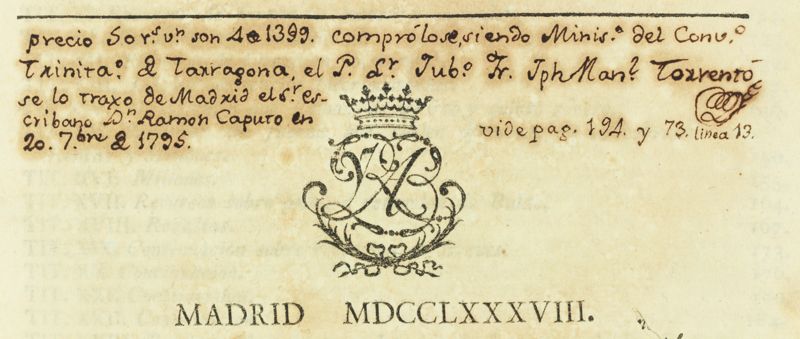 precio 50 rˢ. vⁿ. son 4 a 1399. comprólose, siendo Minisº. del Convº.
Trinitaº. d Tarragona, el P. Lr. Jubº. Fr. Jph Manˡ. Torrentó
se lo traxo de Madrid el Sr. es-
cribano Dⁿ. Ramon Caputo en
20. 7.bre d 1795.
vide pag. 194. y 73. linea 13.
MADRID MDCCLXXXVIII.